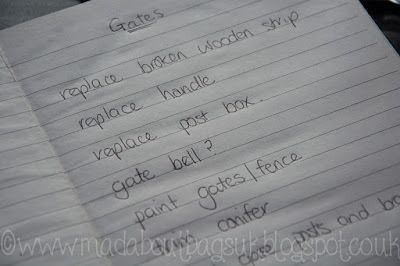 Gates
replace broken wooden strip
replace handle
replace post box.
gate bell?
paint gates/fence
conifer
posts and
©www.madaboutbagsuk.blogspot.co.uk